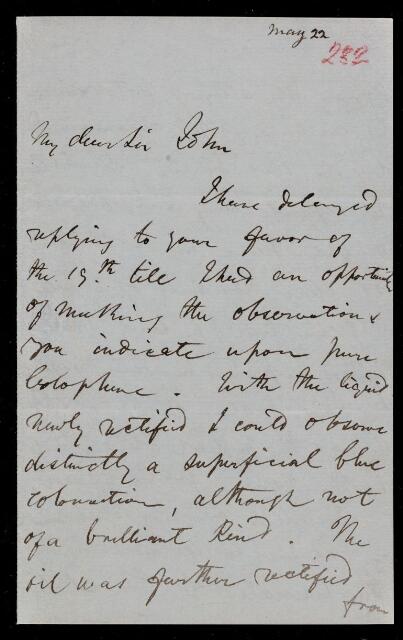 May 22
232
My dear Sir John
I have delayed
replying to your favor of
the 19th till I had an opportunity
of making the observations
you indicate upon pure
Colophene. With the liquid
newly rectified I could observe
distinctly a superficial blue
colouration, although not
of a brilliant kind. The
oil was further rectified
from